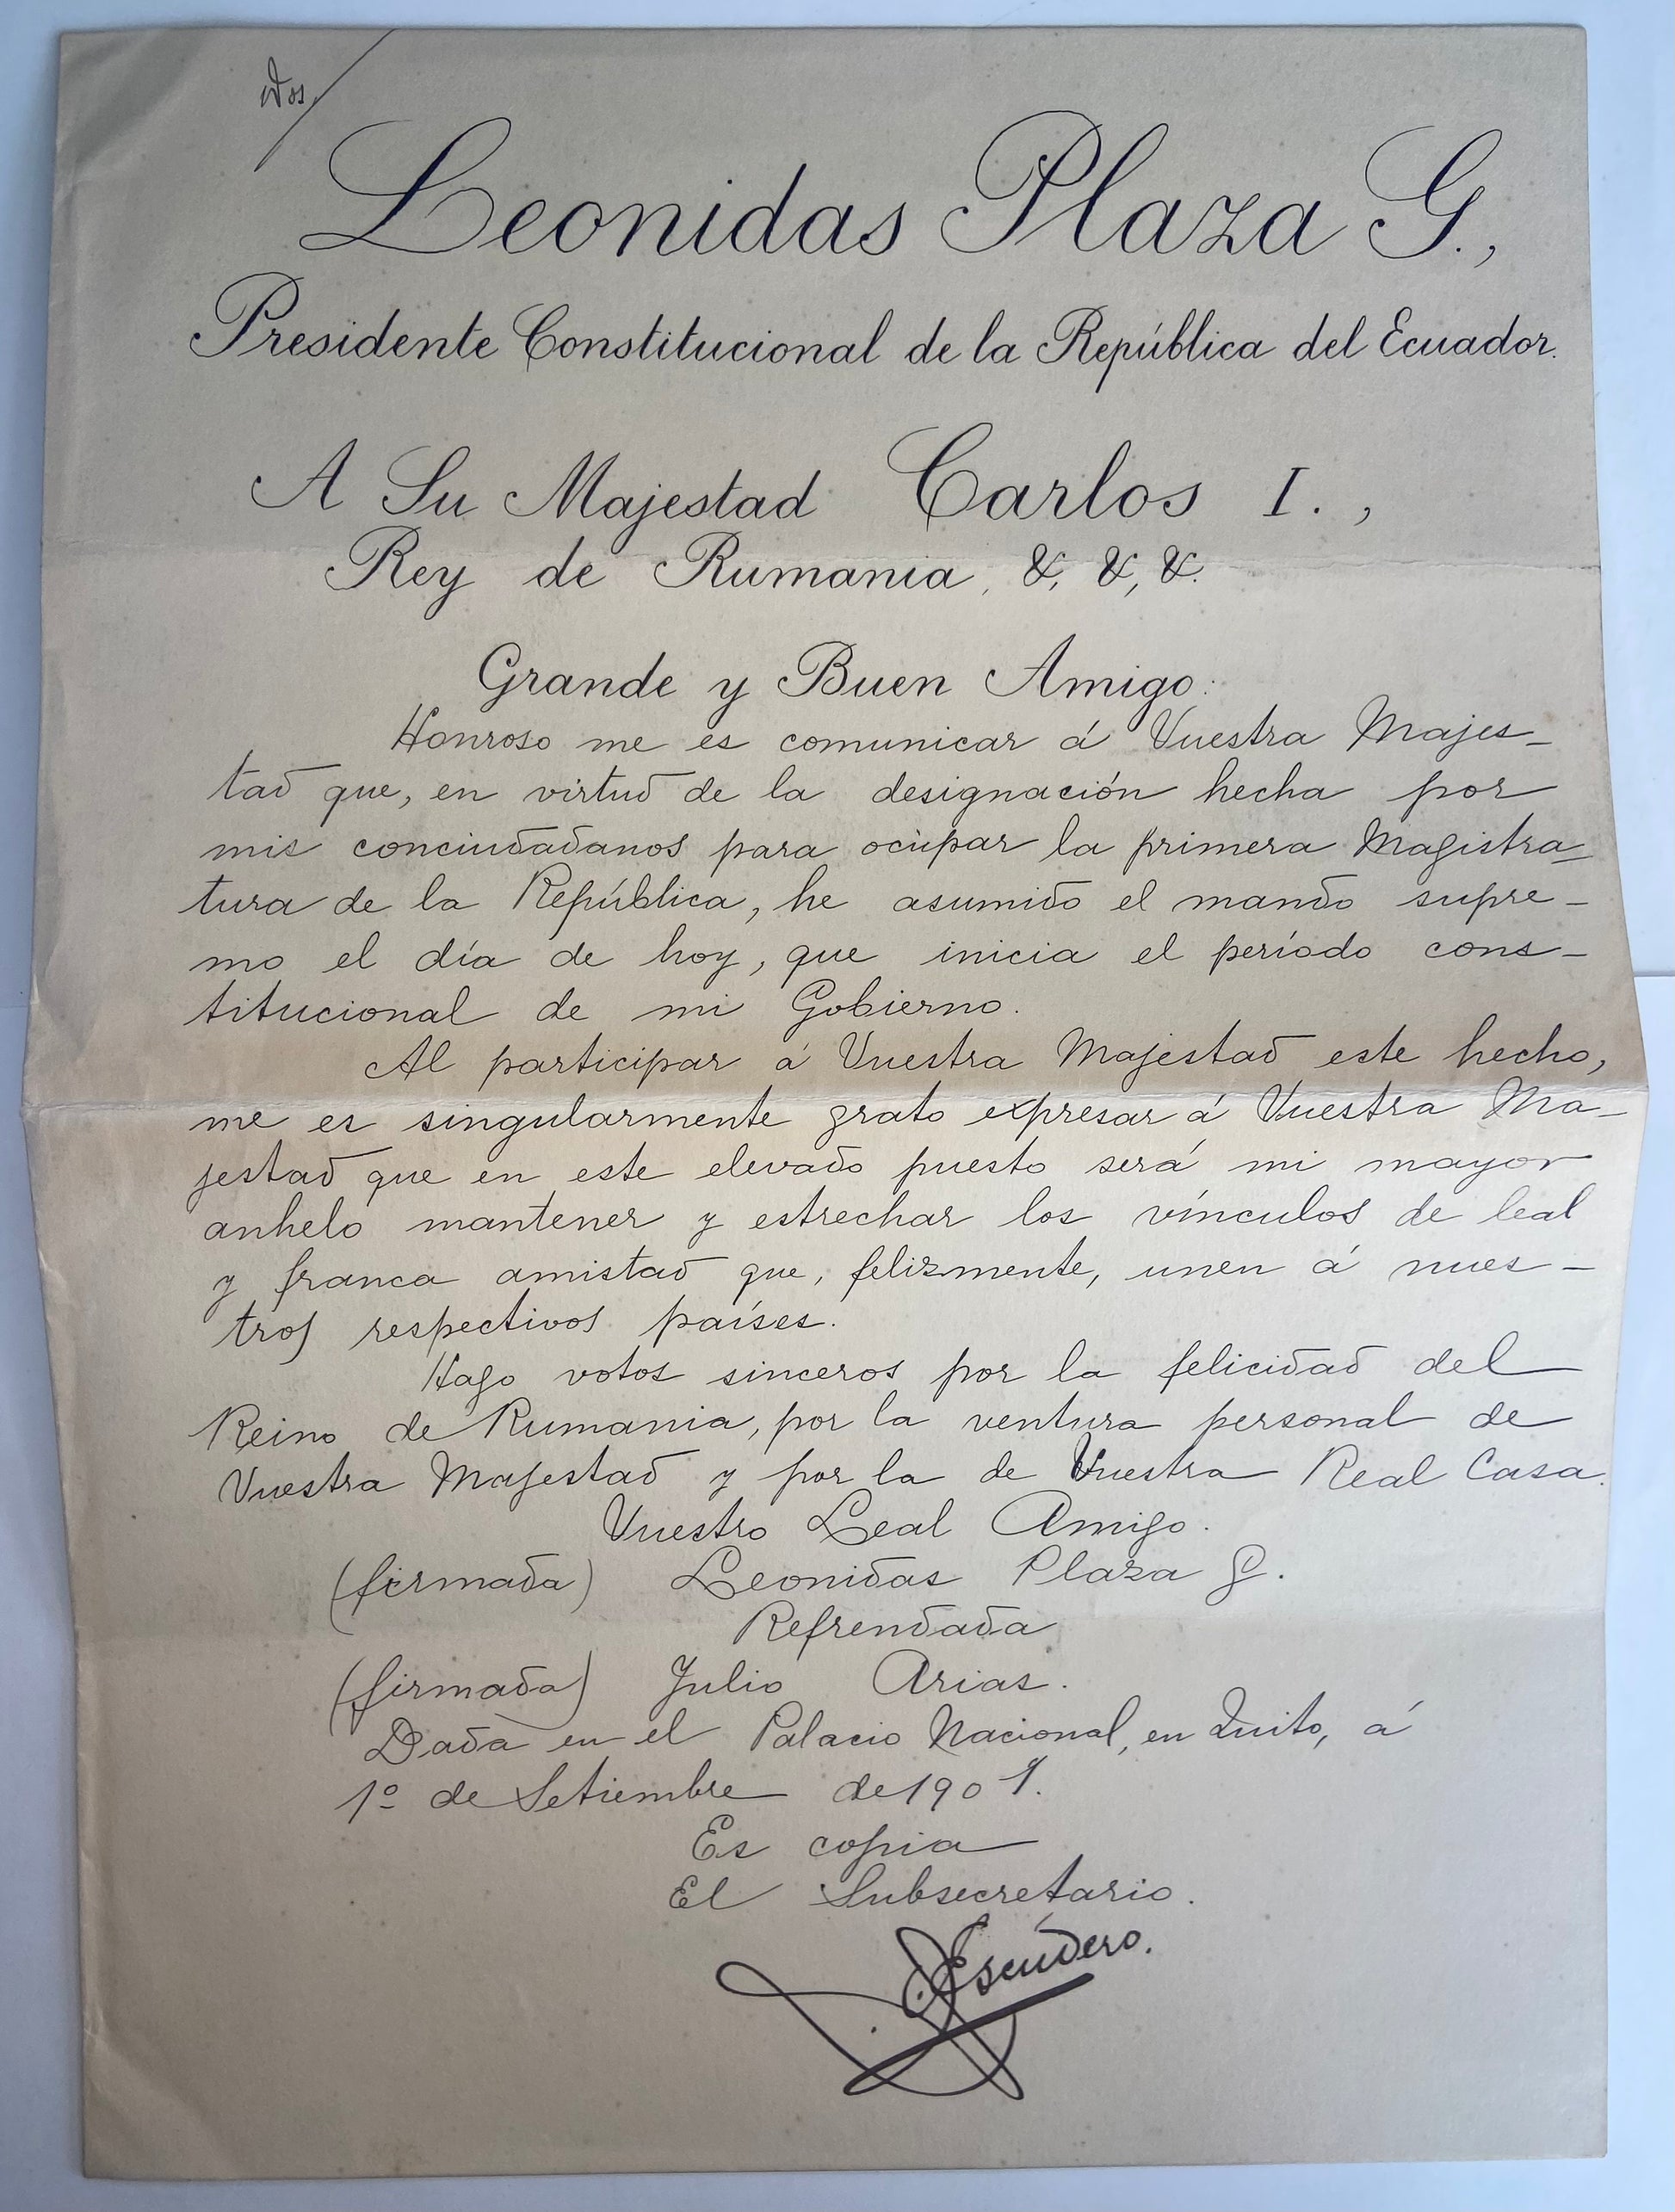 Dos
Leonidas Plaza G.,
Presidente Constitucional de la República del Ecuador.
A Su Majestad Carlos I.,
Rey de Rumania, &, &, &.
Grande y Buen Amigo:
Honroso me es comunicar á Vuestra Majes-
tad que, en virtud de la designación hecha por
mis conciudadanos para ocupar la primera Magistra-
tura de la República, he asumido el mando supre-
mo el día de hoy, que inicia el período cons-
titucional de mi Gobierno.
Al participar á Vuestra Majestad este hecho,
me es singularmente grato expresar á Vuestra Ma-
jestad que en este elevado puesto será mi mayor
anhelo mantener y estrechar los vínculos de leal
y franca amistad que, felizmente, unen á nues-
tros respectivos países.
Hago votos sinceros por la felicidad del
Reino de Rumania, por la ventura personal de
Vuestra Majestad y por la de Vuestra Real Casa.
Vuestro Leal Amigo.
(firmada) Leonidas Plaza G.
Refrendada
(firmada) Julio Arias.
Dada en el Palacio Nacional, en Quito, á
1º de Setiembre de 1901.
Es copia
El Subsecretario.
Escudero.